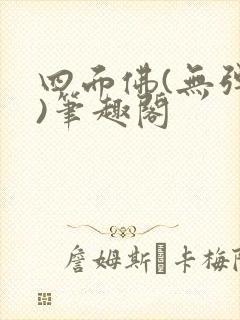 四而佛(無彈
)筆趣閣
詹姆斯�卡梅隆